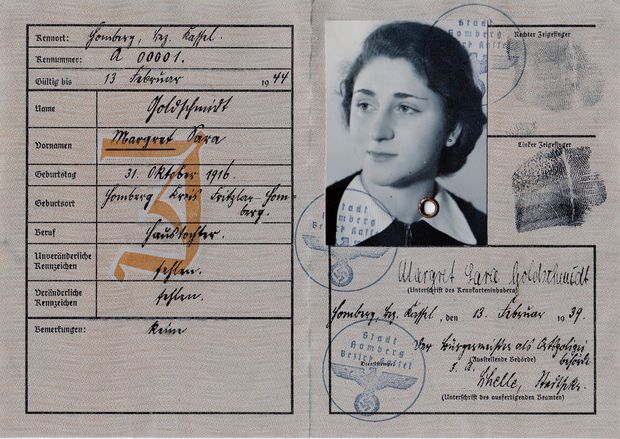 Kennort: Homberg, Bez. Kassel.
Kennummer: A 00001.
Gültig bis 13 Februar 1944
Name Goldschmidt
Vornamen Margret Sara
Geburtstag 31. Oktober 1916.
Geburtsort Homberg Kreis Fritzlar-Hom-
berg.
Beruf Haustochter.
Unveränderliche
Kennzeichen fehlen.
Veränderliche
Kennzeichen fehlen.
Bemerkungen: Keine
J
Stadt
Homberg
Bezirk Kassel
Rechter Zeigefinger
Linker Zeigefinger
Stadt
Homberg
Bezirk Kassel
Margret Sara Goldschmidt
(Unterschrift des Kennkarteninhabers)
Homberg, Bez. Kassel, den 13. Februar 1939.
Der Bürgermeister als Ortspolizei
behörde
(Ausstellende Behörde)
Stadt
Homberg
Bezirk Kassel
Dienststempel
(Unterschrift des ausfertigenden Beamten)